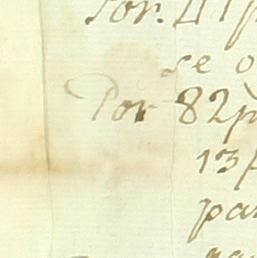 Por. 41p
se o
Por 82p
13p
par